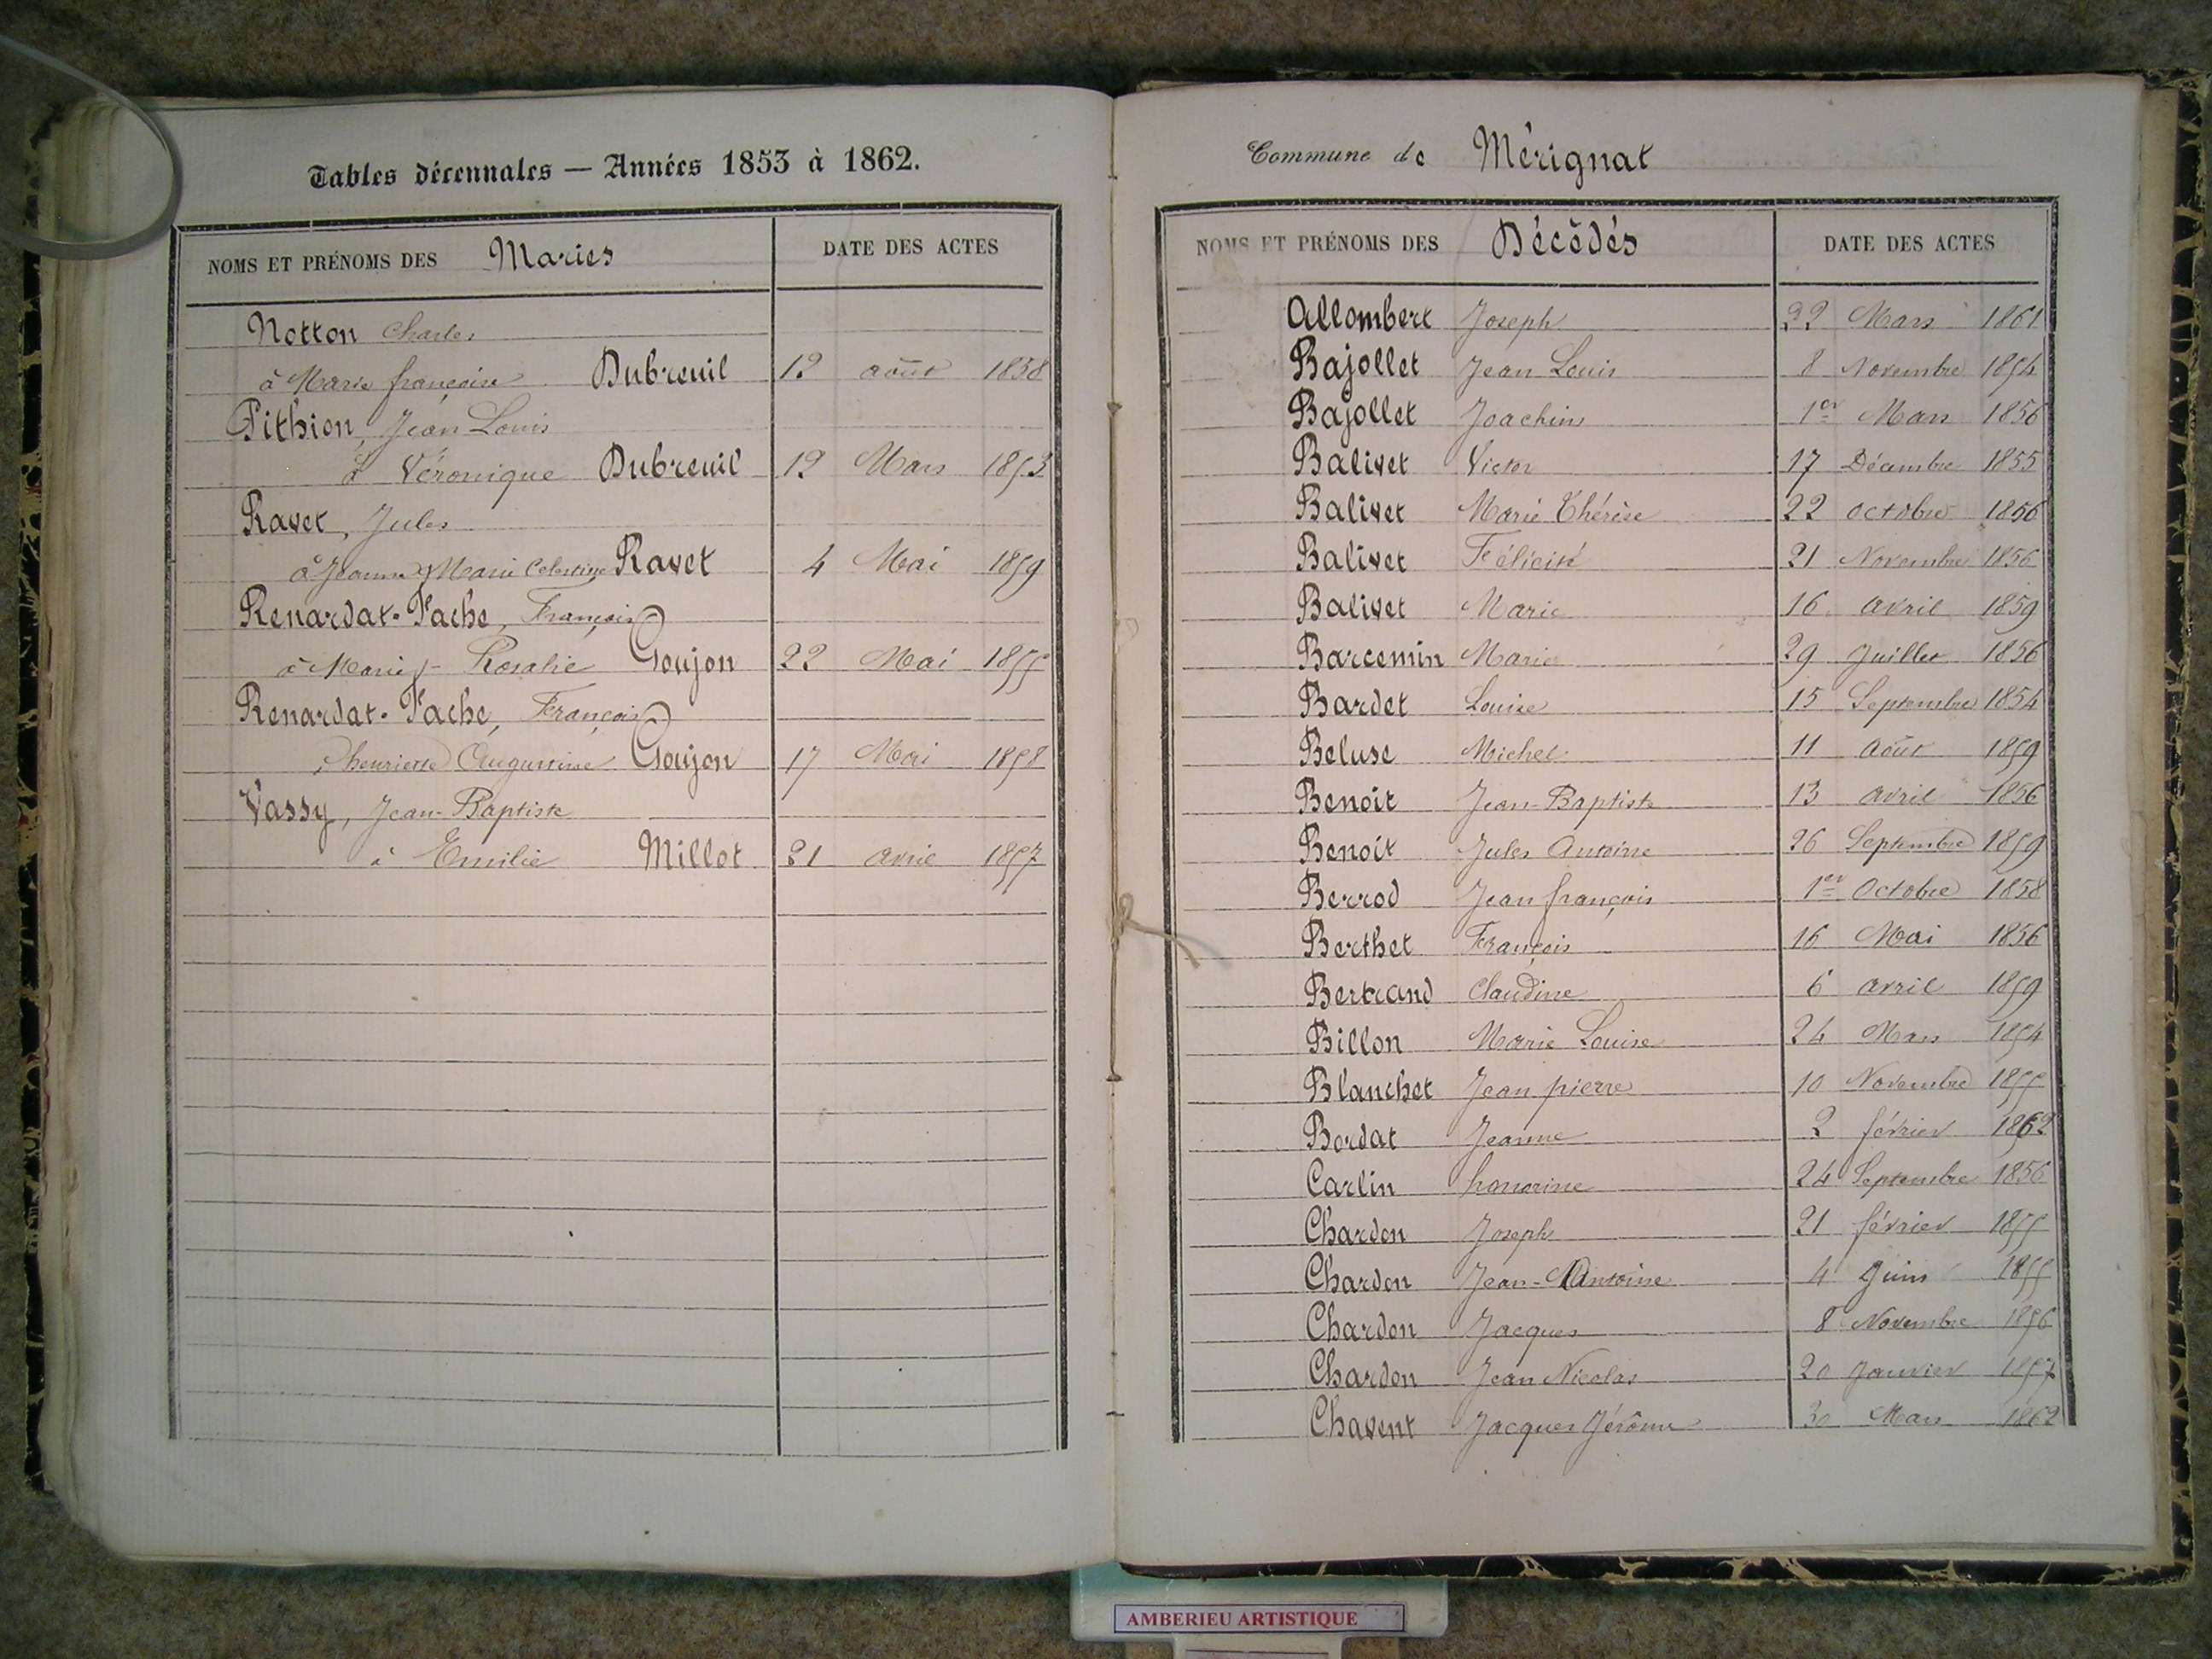 Tables décennales — Années 1853 à 1862.
NOMS ET PRÉNOMS DES Mariés DATE DES ACTES
Notton Charles
à Marie françoise Dubreuil 12 août 1858
Pithion, Jean Louis
à Véronique Dubreuil 12 Mars 1853
Ravet, Jules
à Jeanne Marie Celestine Ravet 4 Mai 1859
Renardat-Fache, François
à Marie Rosalie Goujon 22 Mai 1855
Renardat-Fache, François
henriette Augustine Goujon 17 Mai 1858
Vassy, Jean-Baptiste
à Emilie Millot 21 avril 1857
Commune de Mérignat
NOMS ET PRÉNOMS DES Décédés DATE DES ACTES
Allombert Joseph 22 Mars 1861
Bajollet Jean Louis 8 Novembre 1854
Bajollet Joachim 1er Mars 1856
Balivet Victor 17 Décembre 1855
Balivet Marie Thérèse 22 octobre 1856
Balivet Félicité 21 Novembre 1856
Balivet Marie 16 avril 1859
Barcemin Marie 29 Juillet 1856
Bardet Louise 15 Septembre 1854
Beluse Michel 11 août 1859
Benoit Jean-Baptiste 13 avril 1856
Benoit Jules Antoine 26 Septembre 1859
Berrod Jean françois 1er Octobre 1858
Berthet François 16 Mai 1856
Bertrand Claudine 6 avril 1859
Billon Marie Louise 24 Mars 1854
Blanchet Jean pierre 10 Novembre 1855
Bordat Jeanne 2 février 1862
Carlin honorine 24 Septembre 1856
Chardon Joseph 21 février 1855
Chardon Jean-Antoine 4 Juin 1855
Chardon Jacques 8 Novembre 1856
Chardon Jean Nicolas 20 Janvier 1857
Chavent Jacques Jérôme 30 Mars 1862
AMBERIEU ARTISTIQUE